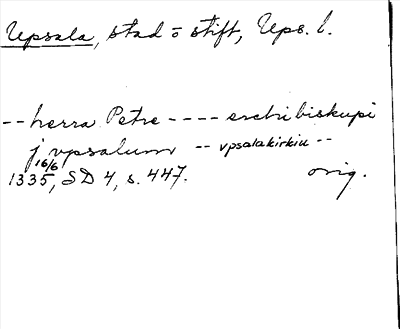 Upsala, stad o stift, Ups. l.
-- herra Petre ---- erchibiskupi
j vpsalum -- vpsalakirkiu --
16/6
1335, SD 4, s. 447. orig.